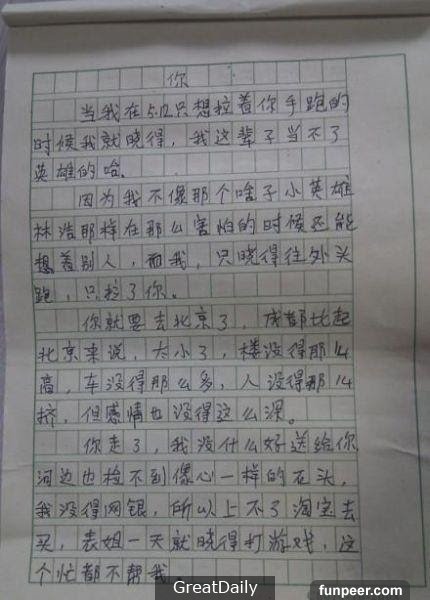 你
当我在5.12只想拉着你手跑的
时候我就晓得，我这辈子当不了
英雄的哈。
因为我不像那个啥子小英雄
林浩那样在那么害怕的时候还能
想着别人，而我，只晓得往外头
跑，只拉了你。
你就要去北京了，成都比起
北京来说，太小了，楼没得那么
高，车没得那么多，人没得那么
挤，但感情也没得这么深。
你走了，我没什么好送给你
河边也捡不到像心一样的石头，
我没得网银，所以上不了淘宝去
买，表姐一天就晓得打游戏，这
个忙都不帮我。
GreatDaily
funpeer.com